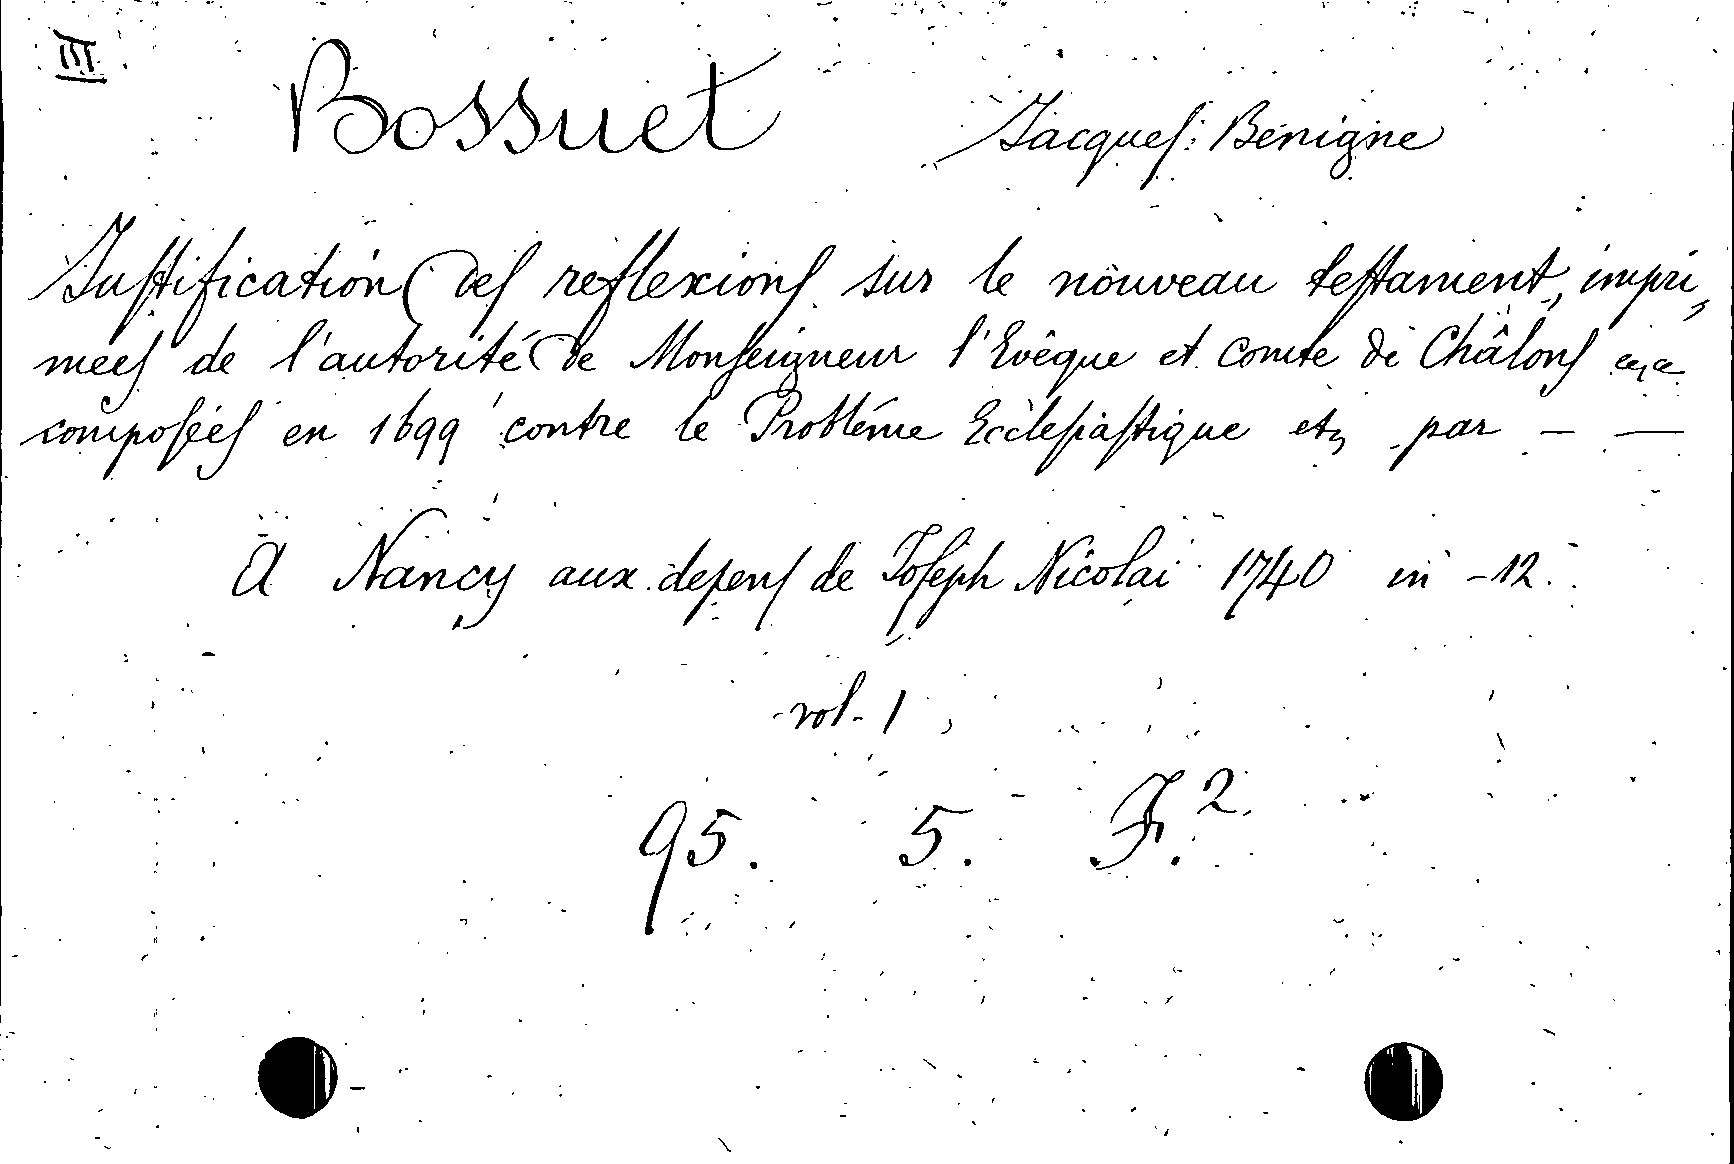 III
Bossuet Jacques Bénigne
Justification des reflexions sur le nouveau testament, impri,
mees de l'autorité de Monseigneur l'Evêque et comte de Châlons
composées en 1699 contre le Probléme Ecclesiastique etc par - —
A Nancy aux depens de Joseph Nicolai 1740 in -12.
vol. 1
95. 5. F.2